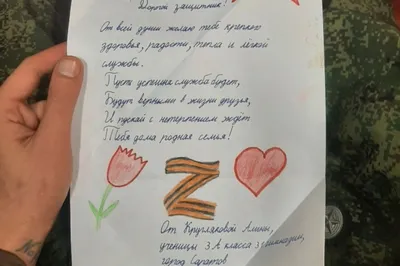 Дорогой защитник!
От всей души желаю тебе крепкого
здоровья, радости, тепла и лёгкой
службы.
Пусть успешна служба будет,
Будут верными в жизни друзья,
И пускай с нетерпением ждёт
Тебя дома родная семья!
Z
От Кругляковой Алины,
ученицы 3А класса
город Саратов